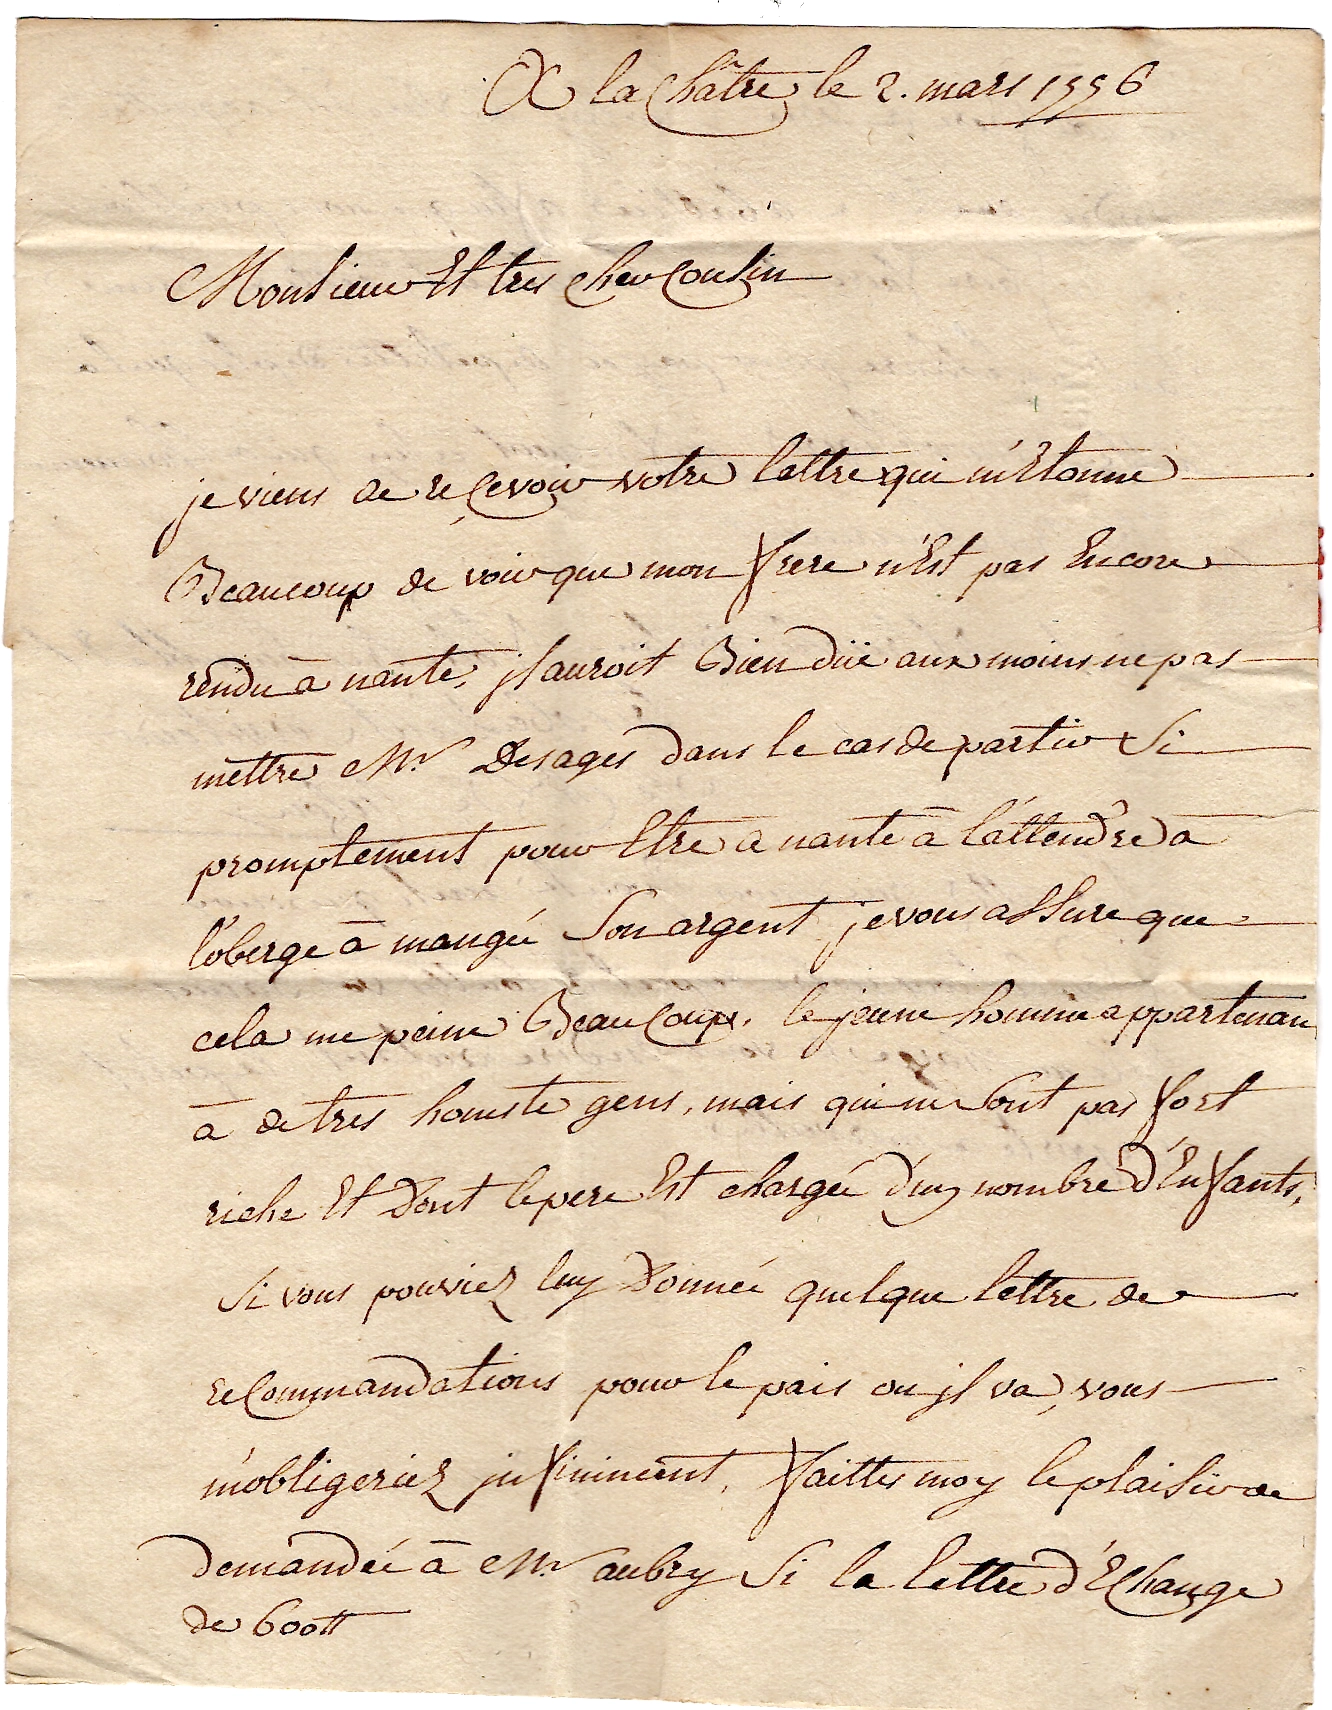 A la Châtre le 2. mars 1776
Monsieur Et tres cher Cousin
je viens de reçevoir votre lettre qui m'Etonne
Beaucoup de voir que mon frere n'Est pas Encore
rendu à nante, jl auroit Bien düe aux moins ne pas
mettre Mr. Desages dans le cas de partir Si
promptement pour Etre a nante à l'attendre à
l'oberge à mangée Son argent je vous assure que
cela me peine BeauCoup. le jeune homme appartenan
à de tres honnete gens, mais qui ne Sont pas fort
riche Et Dont le pere Est chargée d'un nombre d'Enfants,
Si vous pouviez luy Donnée quelque lettre de
reCommandations pour le pais ou jl va, vous
m'obligeriez jnfiniment, faittes moy le plaisir de
demandée à Mr. aubry Si la lettre d'EChange
de 600tt